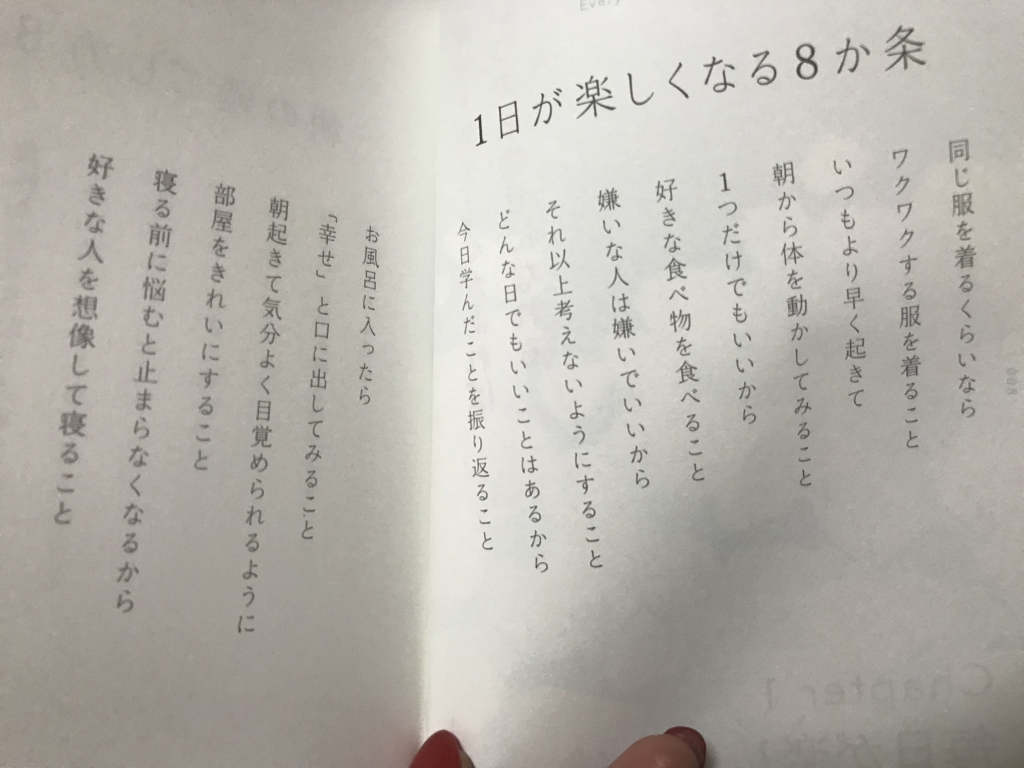 Every
1日が楽しくなる8か条
同じ服を着るくらいなら
ワクワクする服を着ること
いつもより早く起きて
朝から体を動かしてみること
1つだけでもいいから
好きな食べ物を食べること
嫌いな人は嫌いでいいから
それ以上考えないようにすること
どんな日でもいいことはあるから
今日学んだことを振り返ること
お風呂に入ったら
「幸せ」と口に出してみること
朝起きて気分よく目覚められるように
部屋をきれいにすること
寝る前に悩むと止まらなくなるから
好きな人を想像して寝ること
Chapter 1